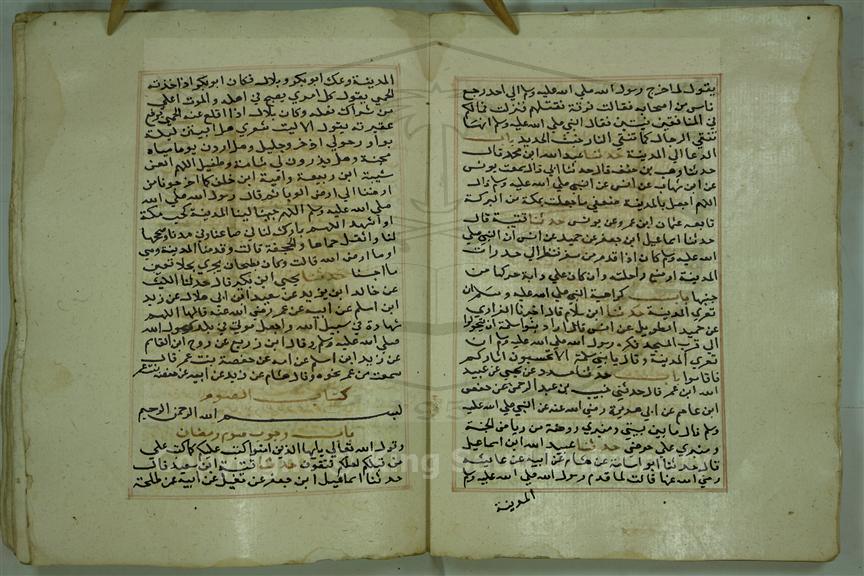 يقول لما خرج رسول الله صلى الله عليه وسلم الى احد رجع
ناس من اصحابه فقالت فرقة نقتلهم فنزلت فما لكم
في المنافقين فئتين فقال النبي صلى الله عليه وسلم انها
تنفي الرجال كما تنفي النار خبث الحديد باب
الدعا الى المدينة حدثنا عبد الله ابن محمد قال
حدثنا وهب بن قال حدثنا ابي قال سمعت يونس
عن ابن شهاب عن انس عن النبي صلى الله عليه وسلم قال
اللهم اجعل بالمدينة ضعفي ما جعلت بمكة من البركة
تابعه عثمان ابن عمر عن يونس حدثنا قتيبة قال
حدثنا اسماعيل ابن جعفر عن حميد عن انس ان النبي صلى
الله عليه وسلم كان اذا قدم من سفر نظر الى جدرات
المدينة اوضع راحلته وان كان على دابة حركها من
حبها باب كراهية النبي صلى الله عليه وسلم ان
تعرى المدينة حدثنا ابن سلام قال اخبرنا الفزاري
عن حميد الطويل عن انس قال اراد بنوا سلمة ان يتحولوا
الى قرب المسجد فكره رسول الله صلى الله عليه وسلم ان
تعرى المدينة وقال يا بني سلمة الا تحتسبون اثاركم
فاقاموا باب حدثنا مسدد عن يحيى عن عبيد
الله ابن عمر قال حدثني خبيب بن عبد الرحمن عن حفص
ابن عاصم عن ابي هريرة رضي الله عنه عن النبي صلى الله عليه
وسلم قال ما بين بيتي ومنبري روضة من رياض الجنة
ومنبري على حوضي حدثنا عبيد الله ابن اسماعيل
قال حدثنا ابو اسامة عن هشام عن ابيه عن عائشة
رضي الله عنها قالت لما قدم رسول الله صلى الله عليه وسلم
المدينة
المدينة وعك ابو بكر وبلال فكان ابو بكر اذا اخذته
الحمى يقول كل امرئ مصبح في اهله والموت ادنى
من شراك نعله وكان بلال اذا اقلع عنه الحمى يرفع
عقيرته يقول الا ليت شعري هل ابيتن ليلة
بواد وحولي اذخر وجليل وهل اردن يوما مياه
مجنة وهل يبدون لي شامة وطفيل اللهم العن
شيبة ابن ربيعة وامية ابن خلف كما اخرجونا من
ارضنا الى ارض الوبا ثم قال رسول الله صلى الله
صلى الله عليه وسلم اللهم حبب الينا المدينة كحبنا مكة
او اشد اللهم بارك لنا في صاعنا وفي مدنا وصححها
لنا وانقل حماها والجحفة قالت وقدمنا المدينة وهي
اوبا ارض الله قالت وكان بطحان يجري نجلا تعني
ما اجنا حدثنا يحيى ابن بكير قال حدثنا الليث
عن خالد ابن يزيد عن سعيد ابن ابي هلال عن زيد
ابن اسلم عن ابيه عن عمر رضي الله عنه قال اللهم
شهادة في سبيل الله واجعل موتي في بلد رسول الله
صلى الله عليه وسلم وقال ابن زريع عن روح ابن القاسم
عن زيد ابن اسلم عن امه عن حفصة بنت عمر قالت
سمعت من عمر نحوه وقال هشام عن زيد عن ابيه عن حفصة بنت عمر
كتاب الصوم
بسم الله الرحمن الرحيم
باب وجوب صوم رمضان
وقول الله تعالى يايها الذين امنوا كتب عليكم كما كتب على
من قبلكم لعلكم تتقون حدثنا قتيبة ابن سعيد قال
حدثنا اسماعيل ابن جعفر عن عن ابيه عن طلحة